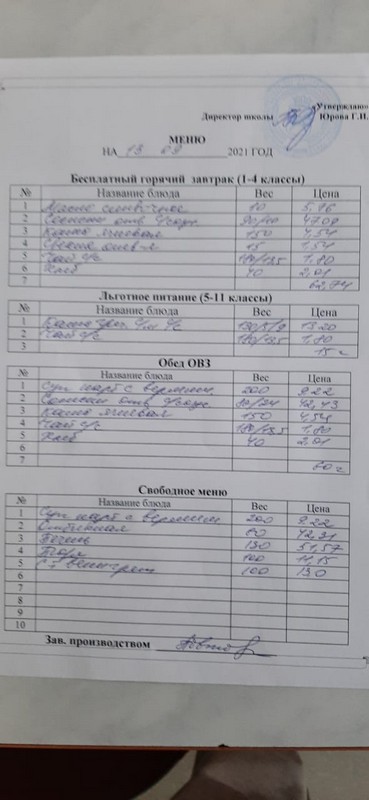 Утверждаю
Директор школы Юрова Г.И.
МЕНЮ
НА 13 09 2021 ГОД
Бесплатный горячий завтрак (1-4 классы)
№ Название блюда Вес Цена
1 Масло сливочное 10 5,76
2 Сосиски отв. с/соус 90/40 47,09
3 Каша ячневая 150 4,54
4 Свекла отв-я 15 1,54
5 Чай с/с 180/13,5 1,80
6 Хлеб 40 2,01
7 62,74
Льготное питание (5-11 классы)
№ Название блюда Вес Цена
1 Каша 13,20
2 Чай с/с 180/13,5 1,80
3 15
Обед ОВЗ
№ Название блюда Вес Цена
1 Суп карт с вермиш. 200 9,22
2 Сосиски отв. с/соус 42,43
3 Каша ячневая 150 4,54
4 Чай с/с 180/13,5 1,80
5 Хлеб 40 2,01
6
7 60
Свободное меню
№ Название блюда Вес Цена
1 Суп карт с вермишел 200 9,22
2 Отбивная 80 42,31
3 Печень 130 51,57
4 100 11,15
5 100 13,0
6
7
8
9
10
Зав. производством